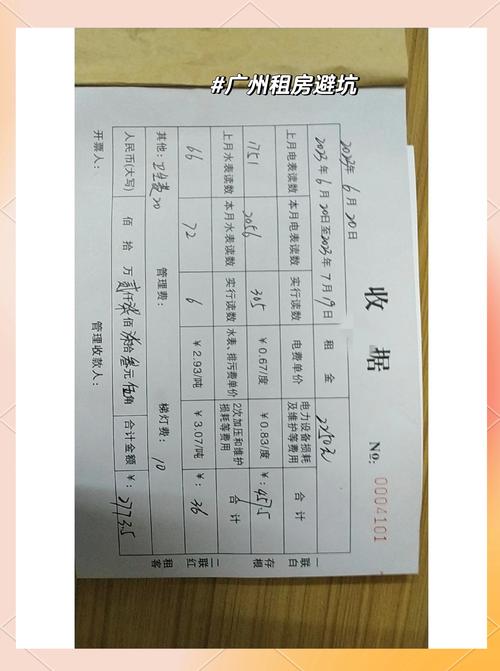 #广州租房避坑
收据
№: 0004101
2023年 6月 20日
2023年 6月 20日至2023年 7月 19日 租金 2250元
上月电表读数 本月电表读数 实行读数 电费单价 电力设备损耗及维护等费用 合计
1751 2056 305 ￥0.67/度 ￥0.83/度 ￥: 457.5
上月水表读数 本月水表读数 实行读数 水表、排污费单价 2次加压和维护损耗等费用 合计
66 72 6 ￥2.93/吨 ￥3.07/吨 ￥: 36
其他: 卫生费20 管理费: 梯灯费: 10
人民币(大写) 佰 拾 万 贰仟柒佰柒拾叁元伍角 合计金额 ￥: 2773.5
开票人: 管理收款人:
一联白 存根
二联红 租客